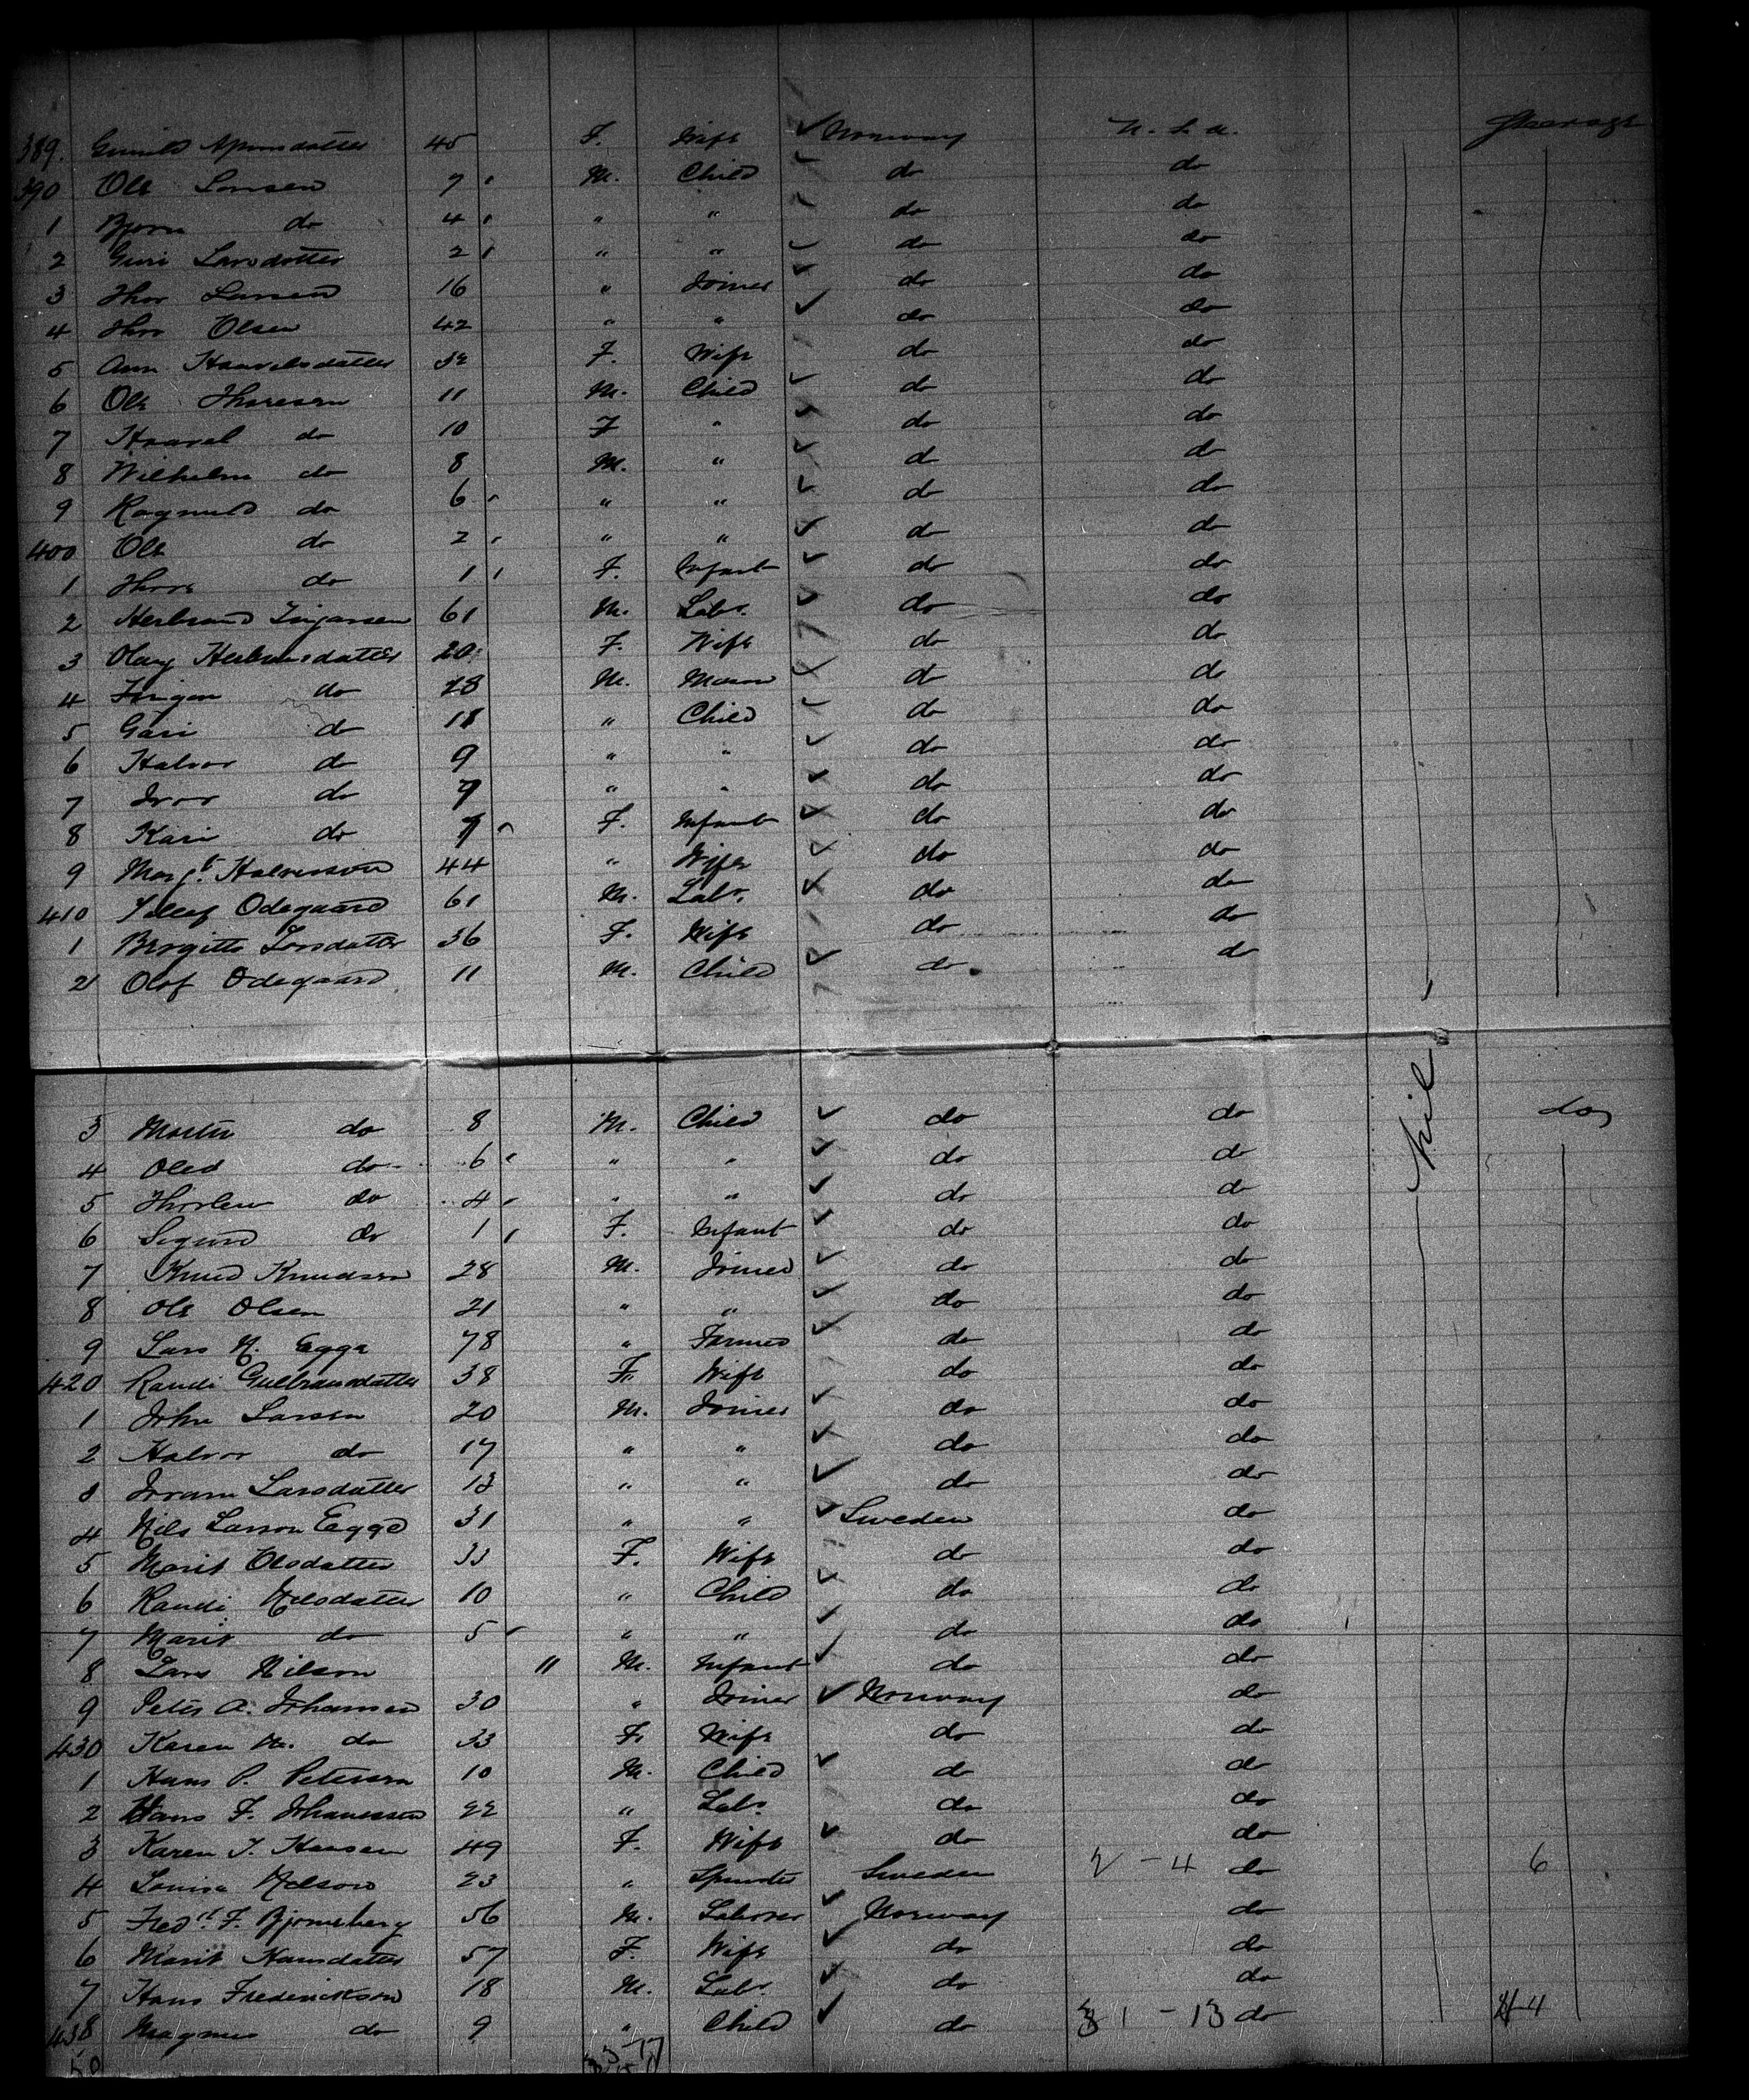 389. Gunild 45 F. Wife ✓ Norway U. S. A. Steerage
390 Ole Larsen 7 M. Child do do
1 Bjorn do 4 " " do do
2 Guri Larsdatter 2 " " do do
3 Thor Larsen 16 " Joiner do do
4 Thor Olsen 42 " " do do
5 Ann 32 F. Wife do do
6 Ole Thoresen 11 M. Child do do
7 Haavel do 10 F " do do
8 Wilhelm do 8 M. " do do
9 Ragnuld do 6 " " do do
400 Ole do 2 " " do do
1 Thore do 1 F. Infant do do
2 Herbrand 61 M. Labr. do do
3 20 F. Wife do do
4 do 28 M. Mason do do
5 do 11 " Child do do
6 Halvor do 9 " " do do
7 Ivor do 9 " " do do
8 Kari do F. Infant do do
9 Margt. Halvorson 44 " Wife do do
410 Odegaard 61 M. Labr. do do
1 Birgitte 36 F. Wife do do
2 Olof Odegaard 11 M. Child do do
Nil
3 do 8 M. Child do do do
4 do 6 " " do do
5 do 4 " " do do
6 do 1 F. Infant do do
7 Knud Knudsen 28 M. Joiner do do
8 Ole Olsen 21 " " do do
9 Lars N. Egge 78 " Farmer do do
420 Randi Gulbransdatter 38 F. Wife do do
1 John Larsen 20 M. Joiner do do
2 Halvor do 17 " " do do
3 Larsdatter 13 " " do do
4 Nils Larson Egge 31 " " Sweden do
5 Marit Olsdatter 33 F. Wife do do
6 Randi Nilsdatter 10 " Child do do
7 Marit do 5 " " do do
8 Lars Nilson 11 M. Infant do do
9 Peter A. Johansen 30 " Joiner Norway do
430 Karen M. do 33 F. Wife do do
1 Hans P. Petersen 10 M. Child do do
2 Hans F. Johanessen 22 " Labr. do do
3 Karen J. Hansen 49 F. Wife do do
4 Louisa Nelson 23 " Spinster Sweden 2 - 4 do 6
5 Fredk. F. Bjorneberg 56 M. Laborer Norway do
6 Marit Hansdatter 57 F. Wife do do
7 Hans Frederickson 18 M. Labr. do do
438 Magnus do 9 " Child do 31 - 13 do
50